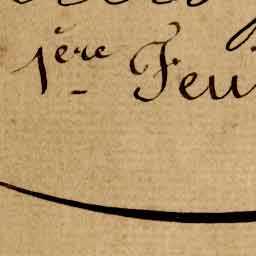 1ère Feu